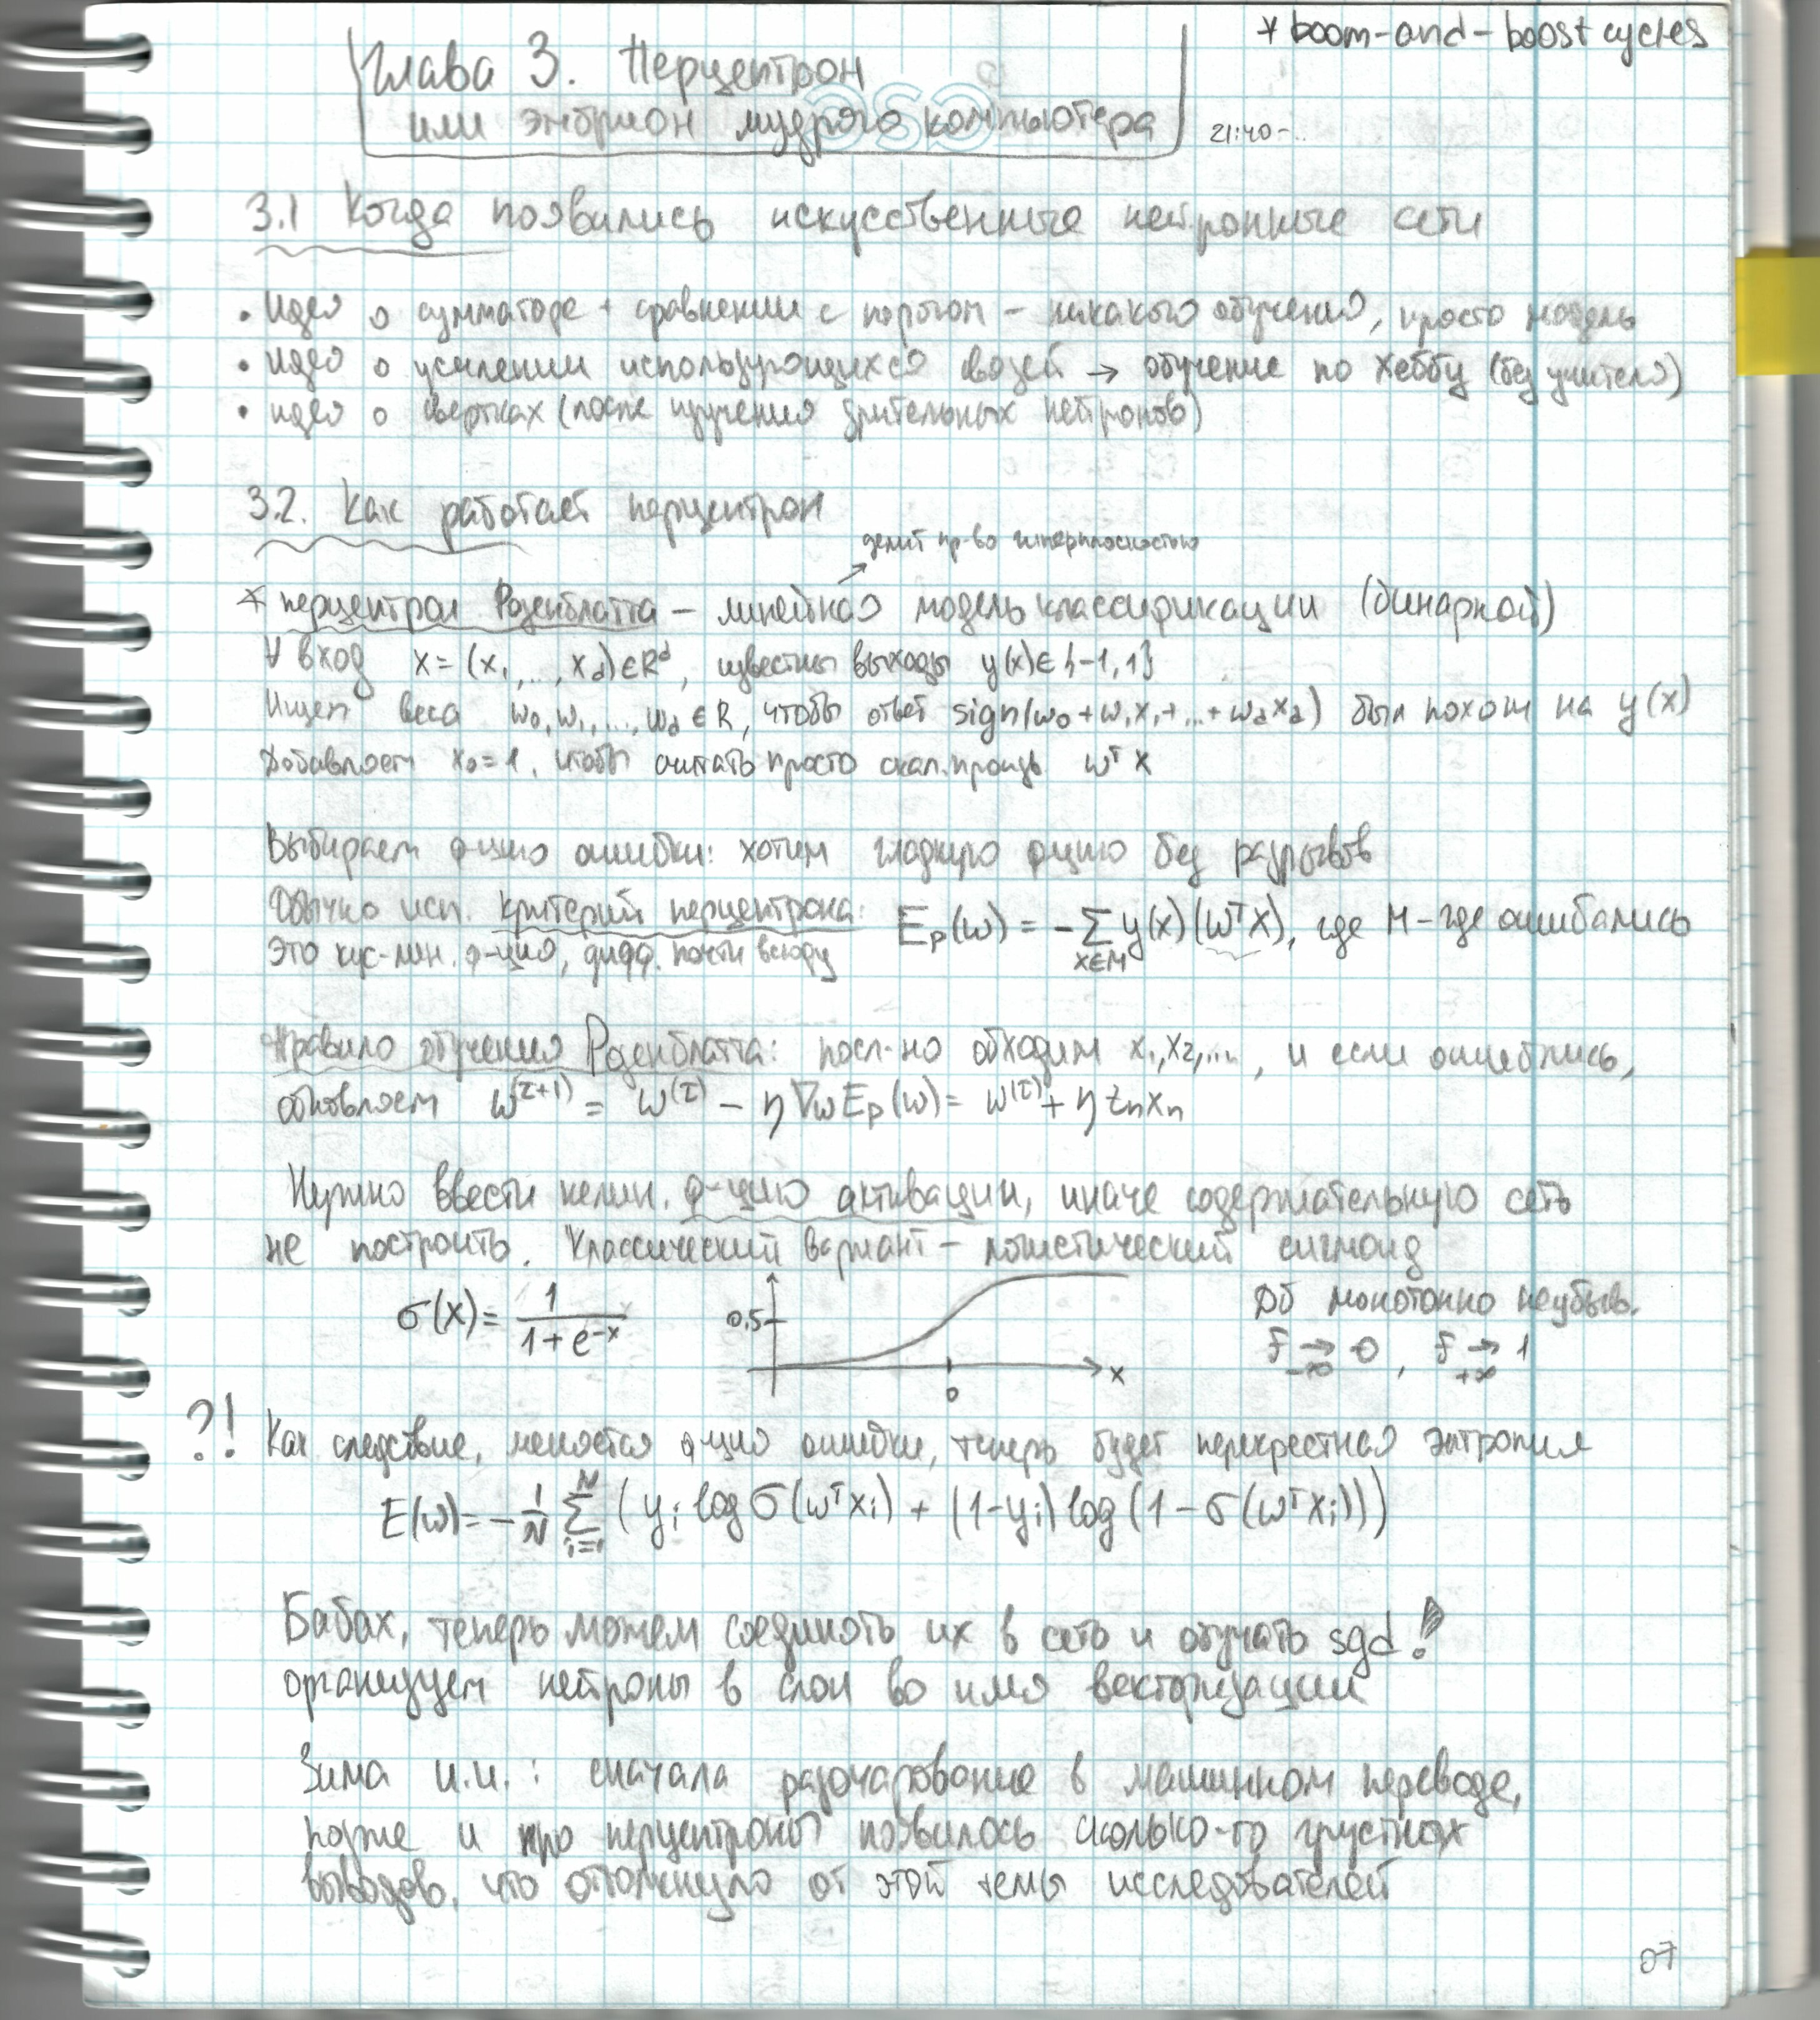 * boom-and-boost cycles
Глава 3. Перцептрон
или эмбрион мудрого компьютера
21:40-...
3.1 Когда появились искусственные нейронные сети
• идея о сумматоре + сравнении с порогом - никакого обучения, просто модель
• идея о усилении использующихся связей → обучение по Хеббу (без учителя)
• идея о свертках (после изучения зрительных нейронов)
3.2. Как работает перцептрон
делит пр-во гиперплоскостью
* перцептрон Розенблатта - линейная модель классификации (бинарной)
∀ вход x = (x₁,..., x_d) ∈ R^d, известны выходы y(x) ∈ {-1, 1}
Ищем веса w₀, w₁, ..., w_d ∈ R, чтобы ответ sign(w₀ + w₁x₁ + ... + w_d x_d) был похож на y(x)
Добавляем x₀ = 1, чтобы считать просто скал. произв wᵀx
Выбираем ф-цию ошибки: хотим гладкую фцию без разрывов
Обычно исп. критерий перцептрона: E_p(w) = - Σ_{x∈M} y(x)(wᵀx), где M - где ошибались
это кус-лин. ф-ция, дифф. почти всюду
Правило обучения Розенблатта: посл-но обходим x₁, x₂, ..., и если ошиблись,
обновляем w^(τ+1) = w^(τ) - η∇_w E_p(w) = w^(τ) + η t_n x_n
Нужно ввести нелин. ф-цию активации, иначе содержательную сеть
не построить. Классический вариант - логистический сигмоид
σ(x) = 1/(1 + e^-x)
0.5
0
x
Дб монотонно неубыв.
f → 0 -∞, f → 1 +∞
?! Как следствие, меняется ф-ция ошибки, теперь будет перекрестная энтропия
E(w) = - 1/N Σ_{i=1}^N (y_i log σ(wᵀx_i) + (1-y_i) log (1 - σ(wᵀx_i)))
Бабах, теперь можем соединять их в сеть и обучать sgd!
организуем нейроны в слои во имя векторизации
Зима и.и.: сначала разочарование в машинном переводе,
позже и про перцептроны появилось сколько-то грустных
выводов, что оттолкнуло от этой темы исследователей
07